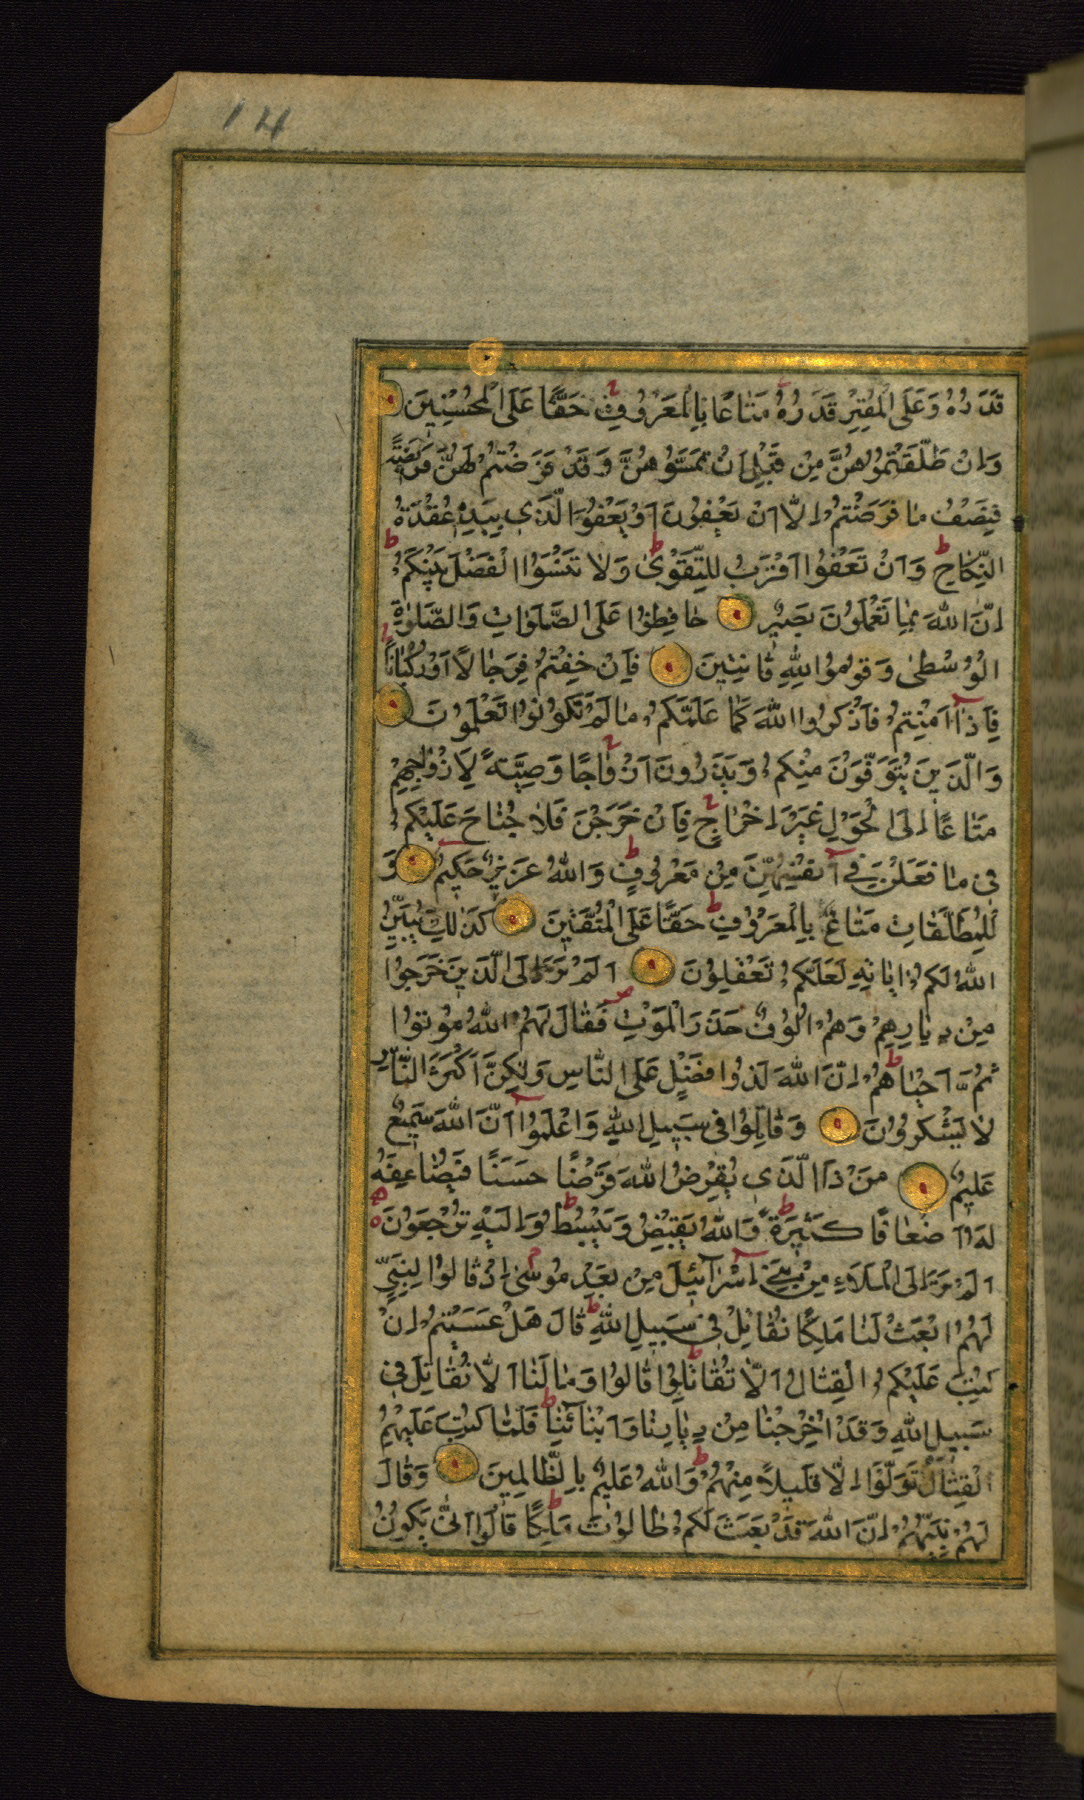 14
قَدَرُهُ وَعَلَى الْمُقْتِرِ قَدَرُهُ مَتَاعًا بِالْمَعْرُوفِ حَقًّا عَلَى الْمُحْسِنِينَ
وَاِنْ طَلَّقْتُمُوهُنَّ مِنْ قَبْلِ اَنْ تَمَسُّوهُنَّ وَقَدْ فَرَضْتُمْ لَهُنَّ فَرِيضَةً
فَنِصْفُ مَا فَرَضْتُمْ اِلَّا اَنْ يَعْفُونَ اَوْ يَعْفُوَا الَّذِي بِيَدِهِ عُقْدَةُ
النِّكَاحِ وَاَنْ تَعْفُوا اَقْرَبُ لِلتَّقْوٰى وَلَا تَنْسَوُا الْفَضْلَ بَيْنَكُمْ
اِنَّ اللّٰهَ بِمَا تَعْمَلُونَ بَصِيرٌ حَافِظُوا عَلَى الصَّلَوَاتِ وَالصَّلَوٰةِ
الْوُسْطٰى وَقُومُوا لِلّٰهِ قَانِتِينَ فَاِنْ خِفْتُمْ فَرِجَالًا اَوْ رُكْبَانًا
فَاِذَا اَمِنْتُمْ فَاذْكُرُوا اللّٰهَ كَمَا عَلَّمَكُمْ مَا لَمْ تَكُونُوا تَعْلَمُونَ
وَالَّذِينَ يُتَوَفَّوْنَ مِنْكُمْ وَيَذَرُونَ اَزْوَاجًا وَصِيَّةً لِاَزْوَاجِهِمْ
مَتَاعًا اِلَى الْحَوْلِ غَيْرَ اِخْرَاجٍ فَاِنْ خَرَجْنَ فَلَا جُنَاحَ عَلَيْكُمْ
فِي مَا فَعَلْنَ فِي اَنْفُسِهِنَّ مِنْ مَعْرُوفٍ وَاللّٰهُ عَزِيزٌ حَكِيمٌ وَ
لِلْمُطَلَّقَاتِ مَتَاعٌ بِالْمَعْرُوفِ حَقًّا عَلَى الْمُتَّقِينَ كَذٰلِكَ يُبَيِّنُ
اللّٰهُ لَكُمْ اٰيَاتِهِ لَعَلَّكُمْ تَعْقِلُونَ اَلَمْ تَرَ اِلَى الَّذِينَ خَرَجُوا
مِنْ دِيَارِهِمْ وَهُمْ اُلُوفٌ حَذَرَ الْمَوْتِ فَقَالَ لَهُمُ اللّٰهُ مُوتُوا
ثُمَّ اَحْيَاهُمْ اِنَّ اللّٰهَ لَذُوا فَضْلٍ عَلَى النَّاسِ وَلٰكِنَّ اَكْثَرَ النَّاسِ
لَا يَشْكُرُونَ وَقَاتِلُوا فِي سَبِيلِ اللّٰهِ وَاعْلَمُوا اَنَّ اللّٰهَ سَمِيعٌ
عَلِيمٌ مَنْ ذَا الَّذِي يُقْرِضُ اللّٰهَ قَرْضًا حَسَنًا فَيُضَاعِفَهُ
لَهُ اَضْعَافًا كَثِيرَةً وَاللّٰهُ يَقْبِضُ وَيَبْسُطُ وَاِلَيْهِ تُرْجَعُونَ
اَلَمْ تَرَ اِلَى الْمَلَاءِ مِنْ بَنِي اِسْرَآئِيلَ مِنْ بَعْدِ مُوسٰى اِذْ قَالُوا لِنَبِيٍّ
لَهُمُ ابْعَثْ لَنَا مَلِكًا نُقَاتِلْ فِي سَبِيلِ اللّٰهِ قَالَ هَلْ عَسَيْتُمْ اِنْ
كُتِبَ عَلَيْكُمُ الْقِتَالُ اَلَّا تُقَاتِلُوا قَالُوا وَمَا لَنَا اَلَّا نُقَاتِلَ فِي
سَبِيلِ اللّٰهِ وَقَدْ اُخْرِجْنَا مِنْ دِيَارِنَا وَاَبْنَائِنَا فَلَمَّا كُتِبَ عَلَيْهِمُ
الْقِتَالُ تَوَلَّوْا اِلَّا قَلِيلًا مِنْهُمْ وَاللّٰهُ عَلِيمٌ بِالظَّالِمِينَ وَقَالَ
لَهُمْ نَبِيُّهُمْ اِنَّ اللّٰهَ قَدْ بَعَثَ لَكُمْ طَالُوتَ مَلِكًا قَالُوا اَنّٰى يَكُونُ